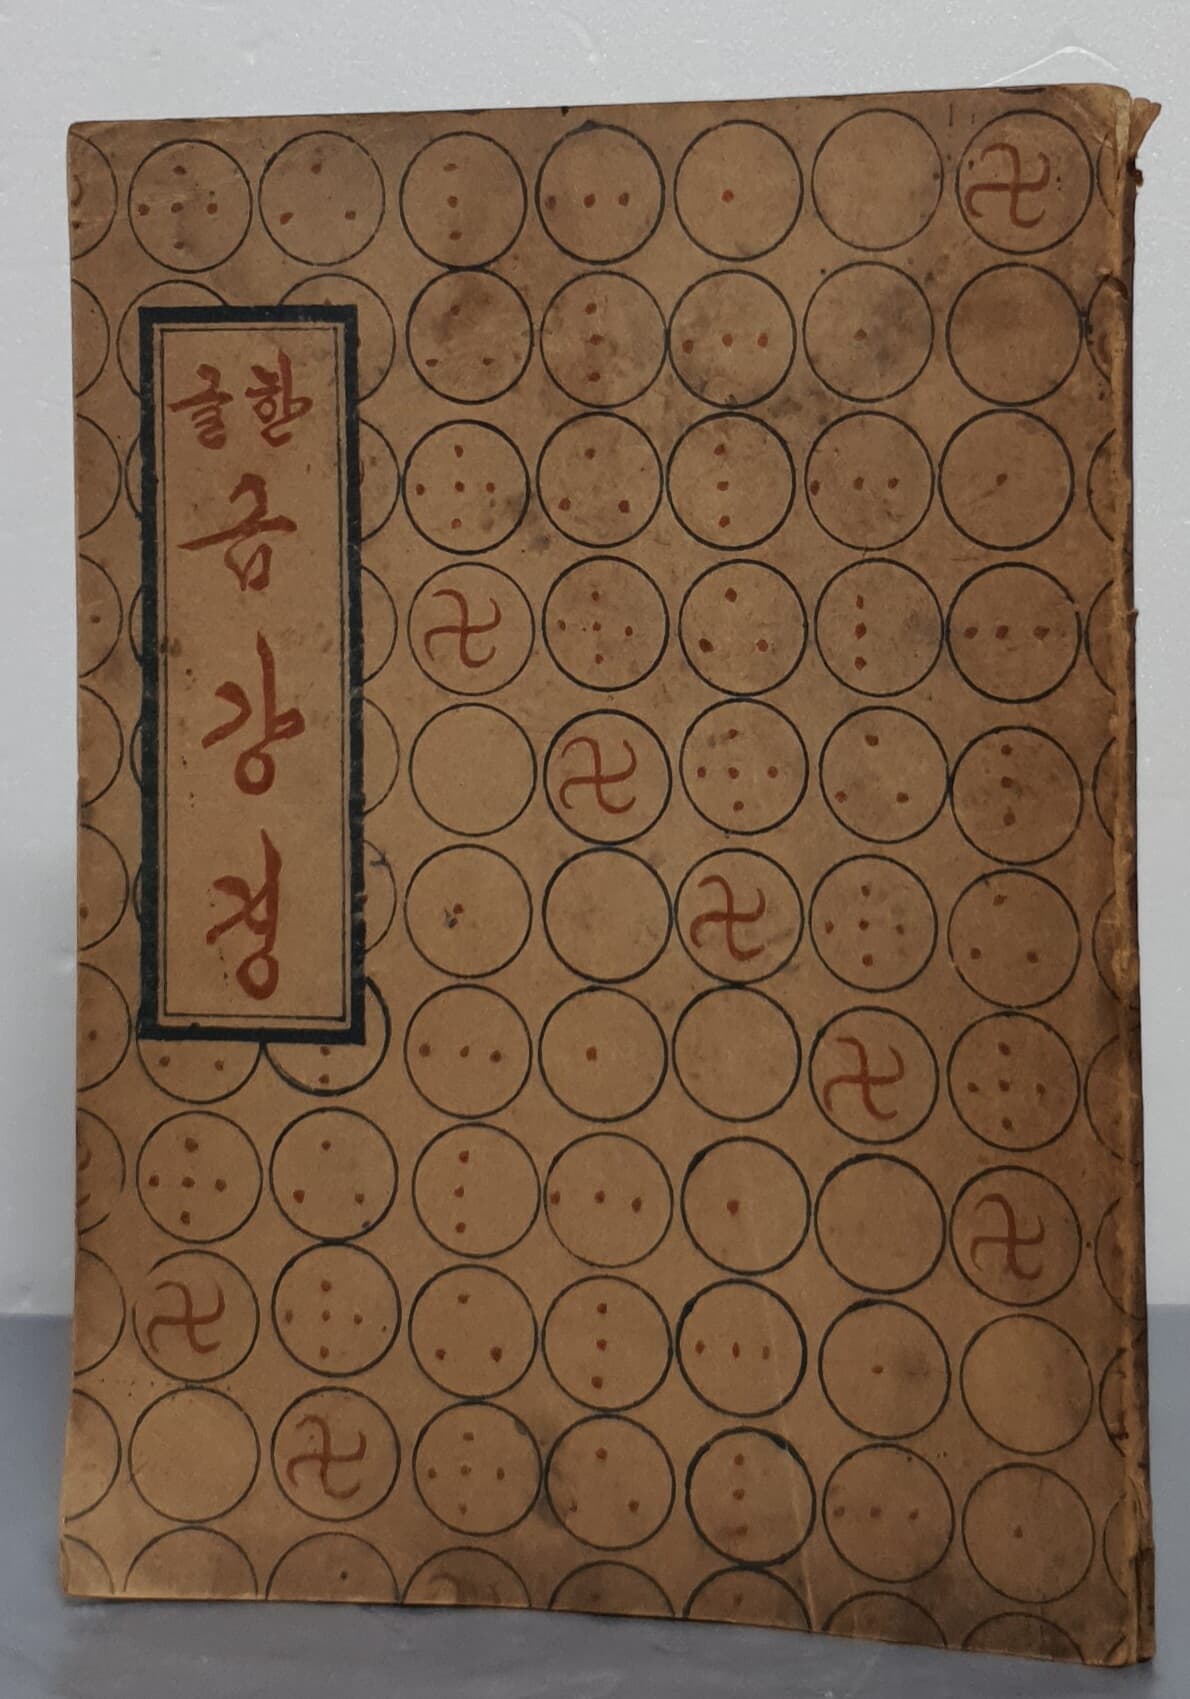 한글
금강경